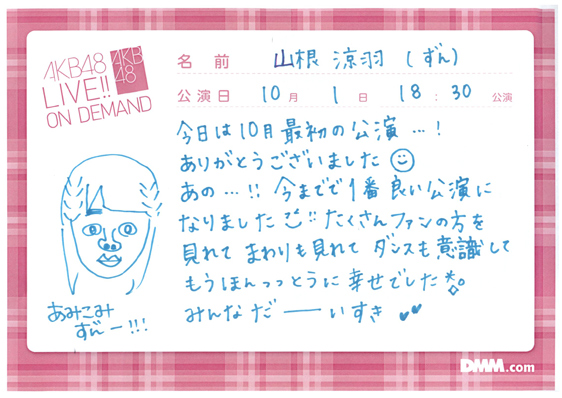 AKB48
LIVE!!
ON DEMAND
AKB
48
名前 山根 涼羽 (ずん)
公演日 10月 1日 18:30 公演
今日は10月最初の公演…!
ありがとうございました
あの…!! 今までで1番良い公演に
なりました たくさんファンの方を
見れて まわりも見れて ダンスも意識して
もうほんっっとうに幸せでした
みんなだーーいすき
あみこみ
ずんー!!!
DMM.com